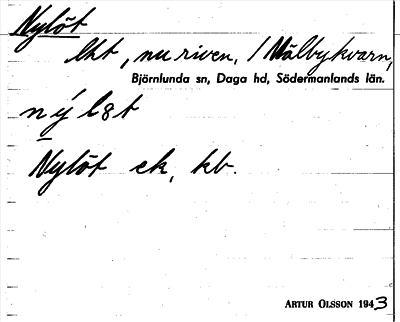 Nylöt
lht, nu riven, / Målbykvarn,
Björnlunda sn, Daga hd, Södermanlands län.
ný l8t
Nylöt ek, kb.
ARTUR OLSSON 1943